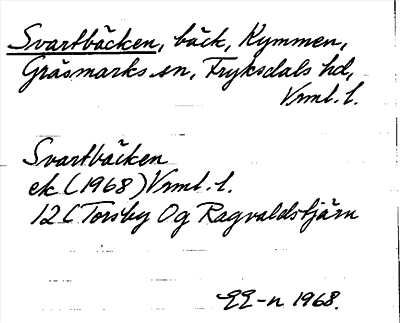 Svartbäcken, bäck, Kymmen,
Gräsmarks sn, Fryksdals hd,
Vrml. l.
Svartbäcken
ek (1968) Vrml. l.
12 C Torsby Og Ragvaldstjärn
-n 1968.